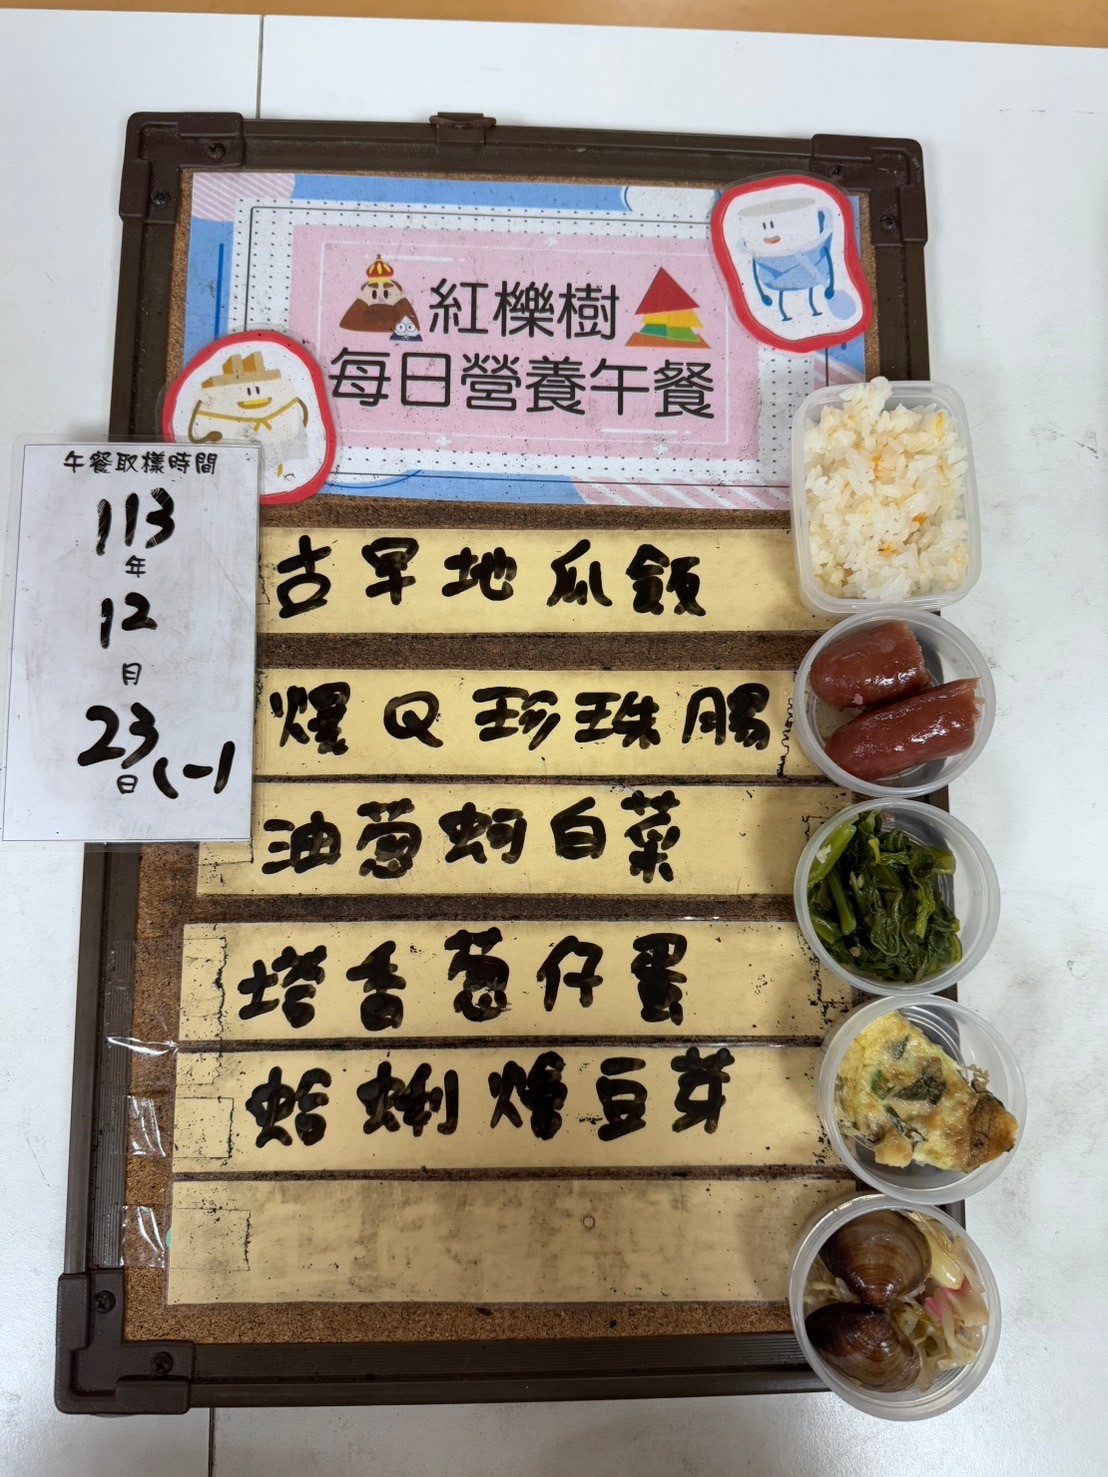 紅櫟樹
每日營養午餐
午餐取樣時間
113
年
12
月
23
日(一)
古早地瓜飯
爆Q珍珠腸
油蔥蚵白菜
塔香蔥仔蛋
蛤蜊燴豆芽